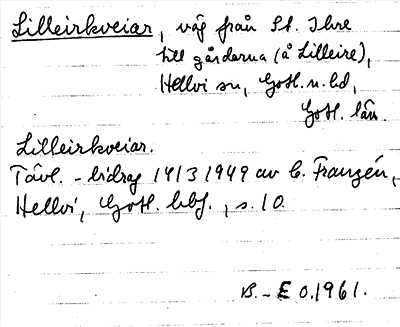 Lilleirkveiar, väg från St. Ihre
till gårdarna (å Lilleire),
Hellvi sn, Gotl. n. hd,
Gotl. län.
Lilleirkveiar.
Tävl.-bidrag 14/3 1949 av C. Franzén,
Hellvi, Gotl. , s. 10.
B.-E O. 1961.